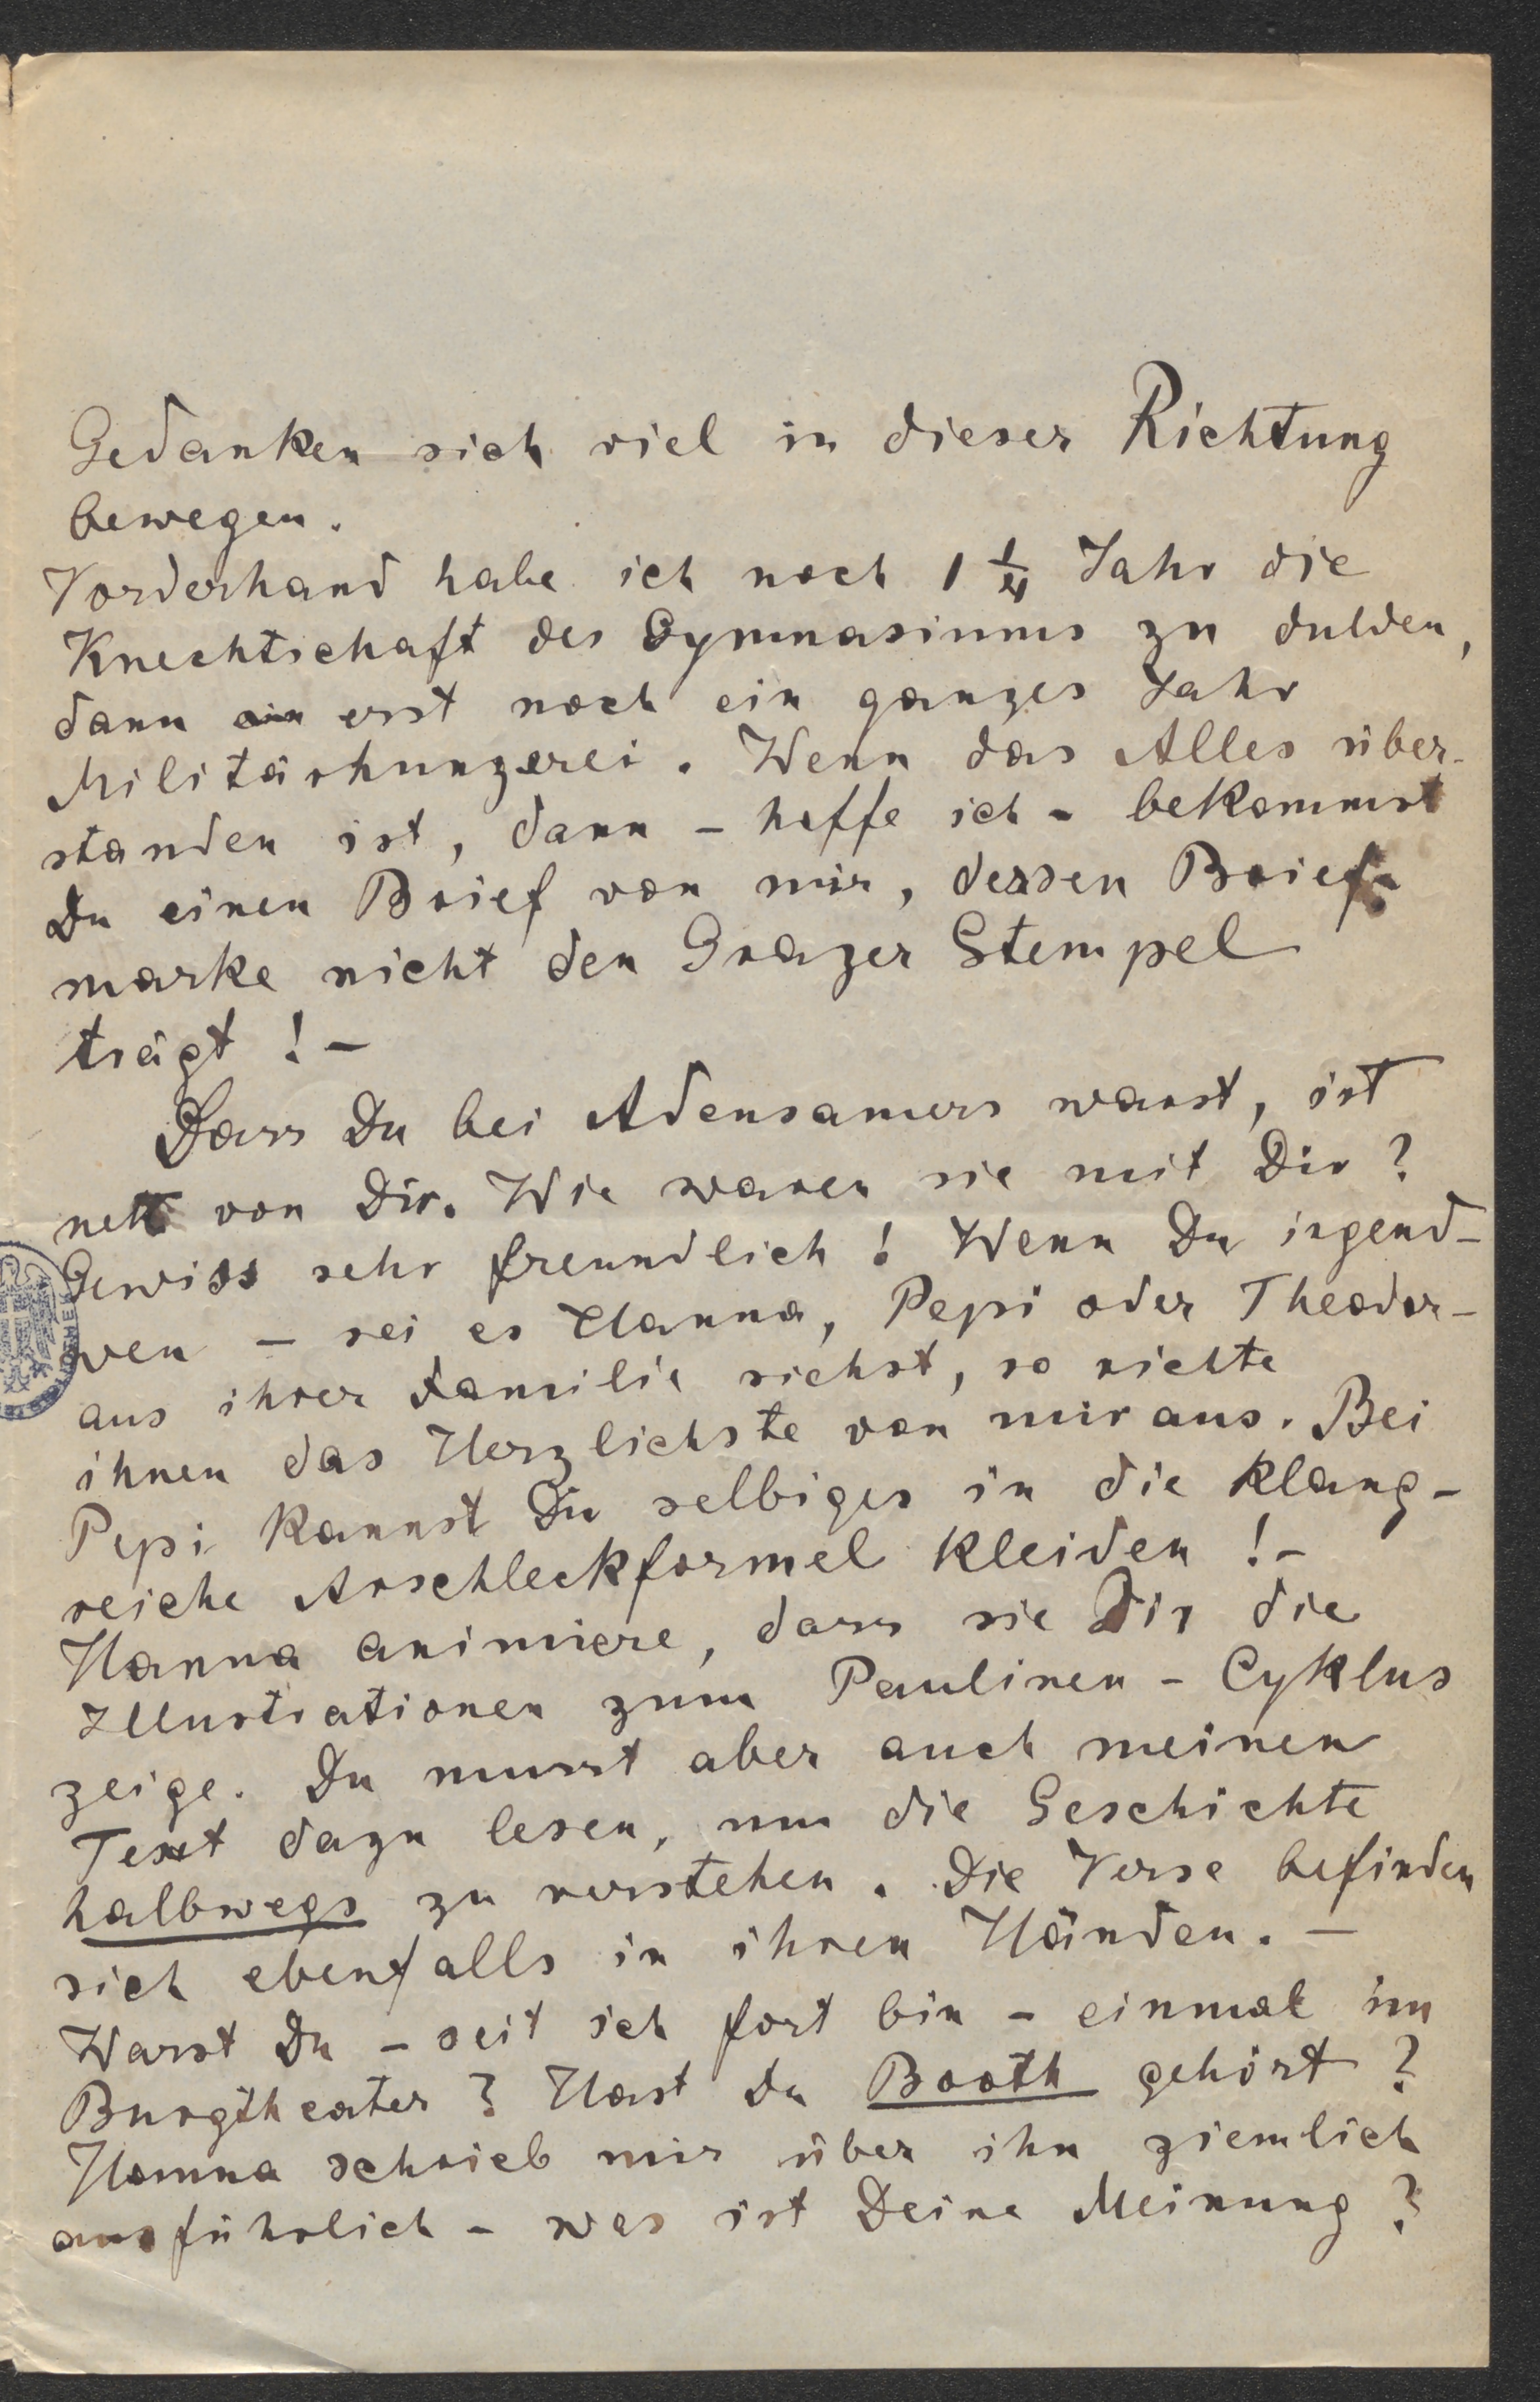 Gedanken sich viel in dieser Richtung
bewegen.
Vorderhand habe ich noch 1 1/4 Jahr die
Knechtschaft des Gymnasiums zu dulden,
dann erst noch ein ganzes Jahr
Militärhunzerei. Wenn das Alles über-
standen ist, dann – hoffe ich – bekommst
Du einen Brief von mir, dessen Brief-
marke nicht den Grazer Stempel
trägt! –
Dass Du bei Adensamers warst, ist
nett von Dir. Wie waren sie mit Dir?
Gewiss sehr freundlich! Wenn Du irgend-
wen – sei es Hanna, Pepi oder Theodor –
aus ihrer Familie siehst, so richte
ihnen das Herzlichste von mir aus. Bei
Pepi kannst Du selbiges in die klang-
reiche Arschleckformel kleiden! –
Hanna animiere, dass sie Dir die
Illustrationen zum Paulinen-Cyklus
zeige. Du musst aber auch meinen
Text dazu lesen, um die Geschichte
halbwegs zu verstehen. Die Verse befinden
sich ebenfalls in ihren Händen. –
Warst Du – seit ich fort bin – einmal im
Burgtheater? Hast du Booth gehört?
Hanna schrieb mir über ihn ziemlich
ausführlich – was ist Deine Meinung?